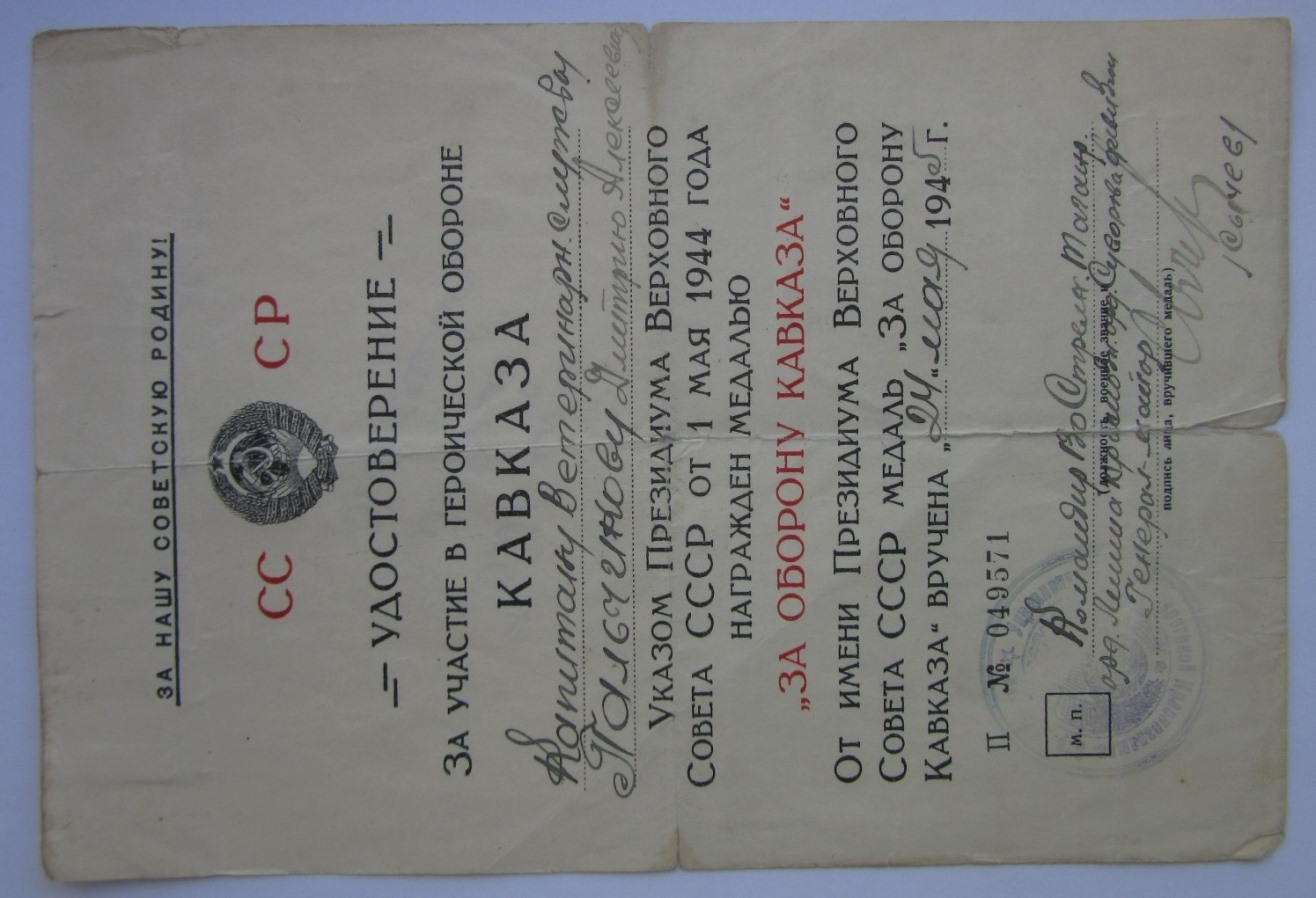 ЗА НАШУ СОВЕТСКУЮ РОДИНУ!
СС СР
УДОСТОВЕРЕНИЕ
ЗА УЧАСТИЕ В ГЕРОИЧЕСКОЙ ОБОРОНЕ
КАВКАЗА
Капитану Ветеринарн. службы
Дмитрию Алексеевичу
УКАЗОМ ПРЕЗИДИУМА ВЕРХОВНОГО
СОВЕТА СССР ОТ 1 МАЯ 1944 ГОДА
НАГРАЖДЕН МЕДАЛЬЮ
„ЗА ОБОРОНУ КАВКАЗА“
ОТ ИМЕНИ ПРЕЗИДИУМА ВЕРХОВНОГО
СОВЕТА СССР МЕДАЛЬ „ЗА ОБОРОНУ
КАВКАЗА“ ВРУЧЕНА „24“ мая 1945 г.
II № 049571
М. П.
Командир Стрелк. Таганр.
орд. Ленина Краснозн. орд. Суворова дивизии
(должность, военное звание и
Генерал-майор
подпись лица, вручившего медаль)
/Сычев/